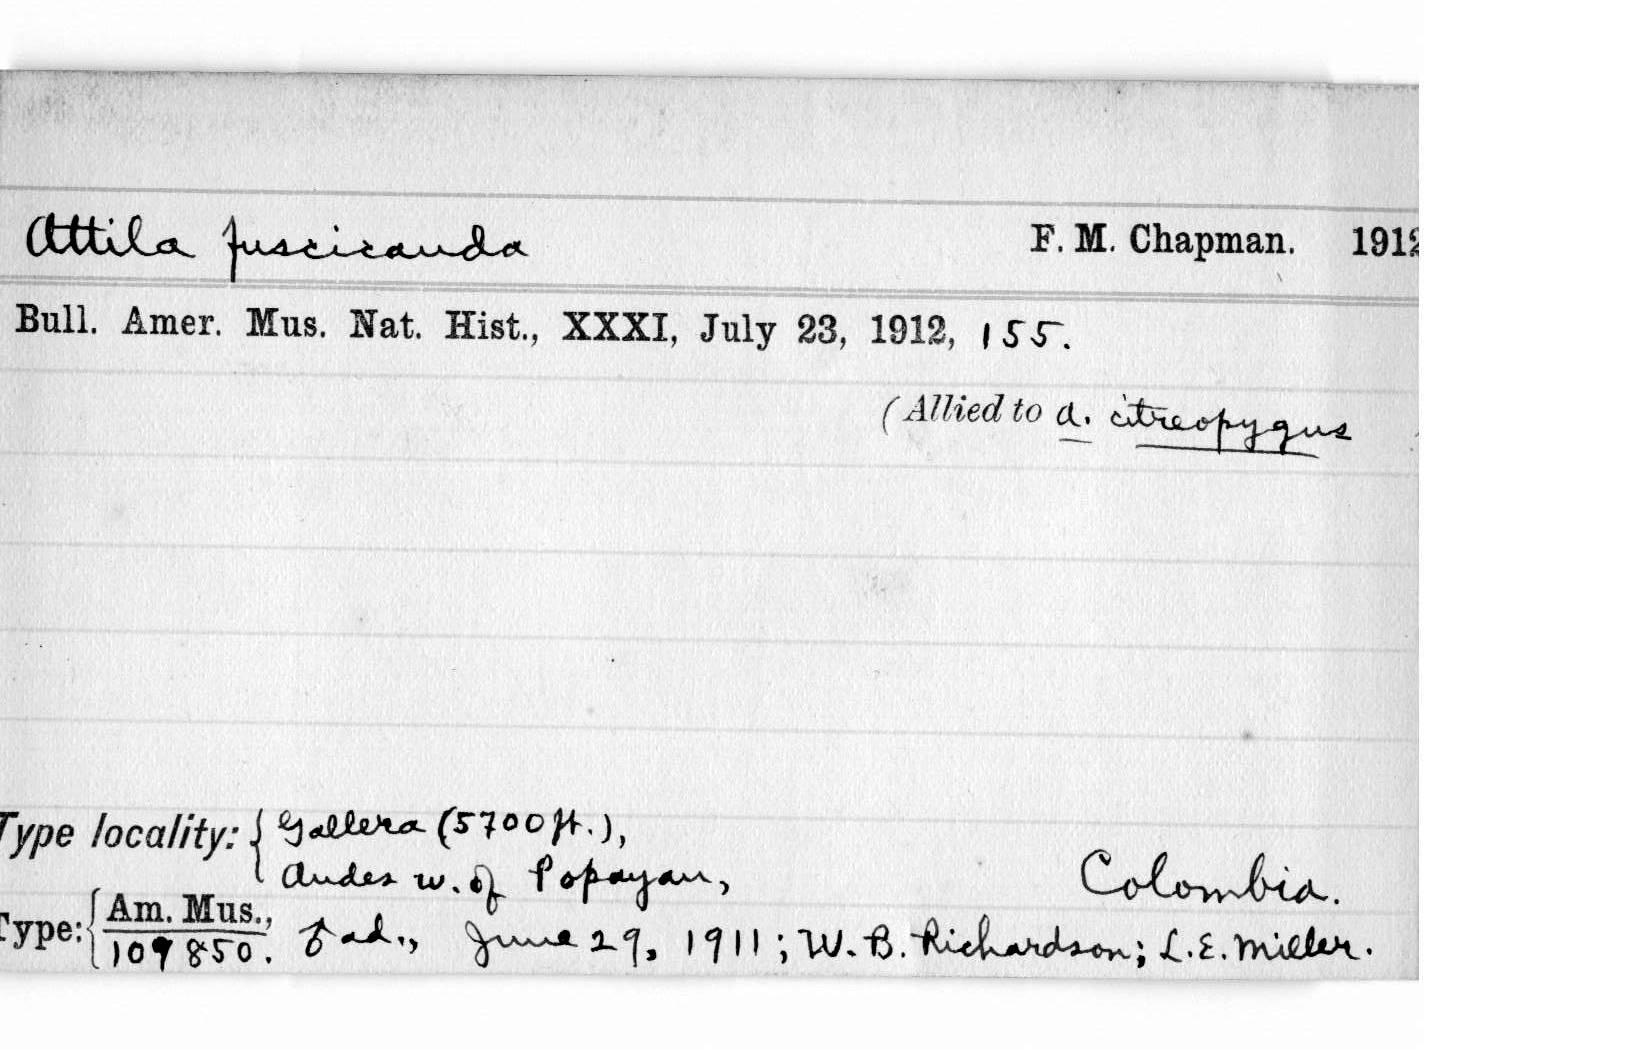 Attila fuscicauda F. M. Chapman. 1912
Bull. Amer. Mus. Nat. Hist., XXXI, July 23, 1912, 155.
(Allied to A. citreopygus
Type locality: { Gallera (5700 ft.),
Andes w. of Popayan, Colombia.
Type: { Am. Mus.,
109850. ad., June 29, 1911; W. B. Richardson; L. E. Miller.